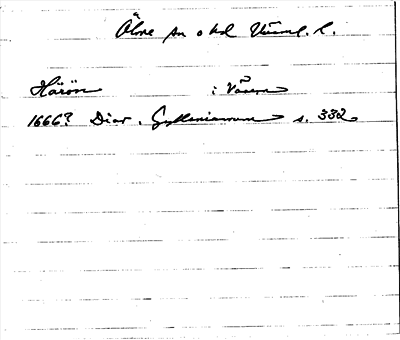 Ölme sn o hd Värml. l.
Härön i Vänern
1666? Diar. Gyllenianum s. 332